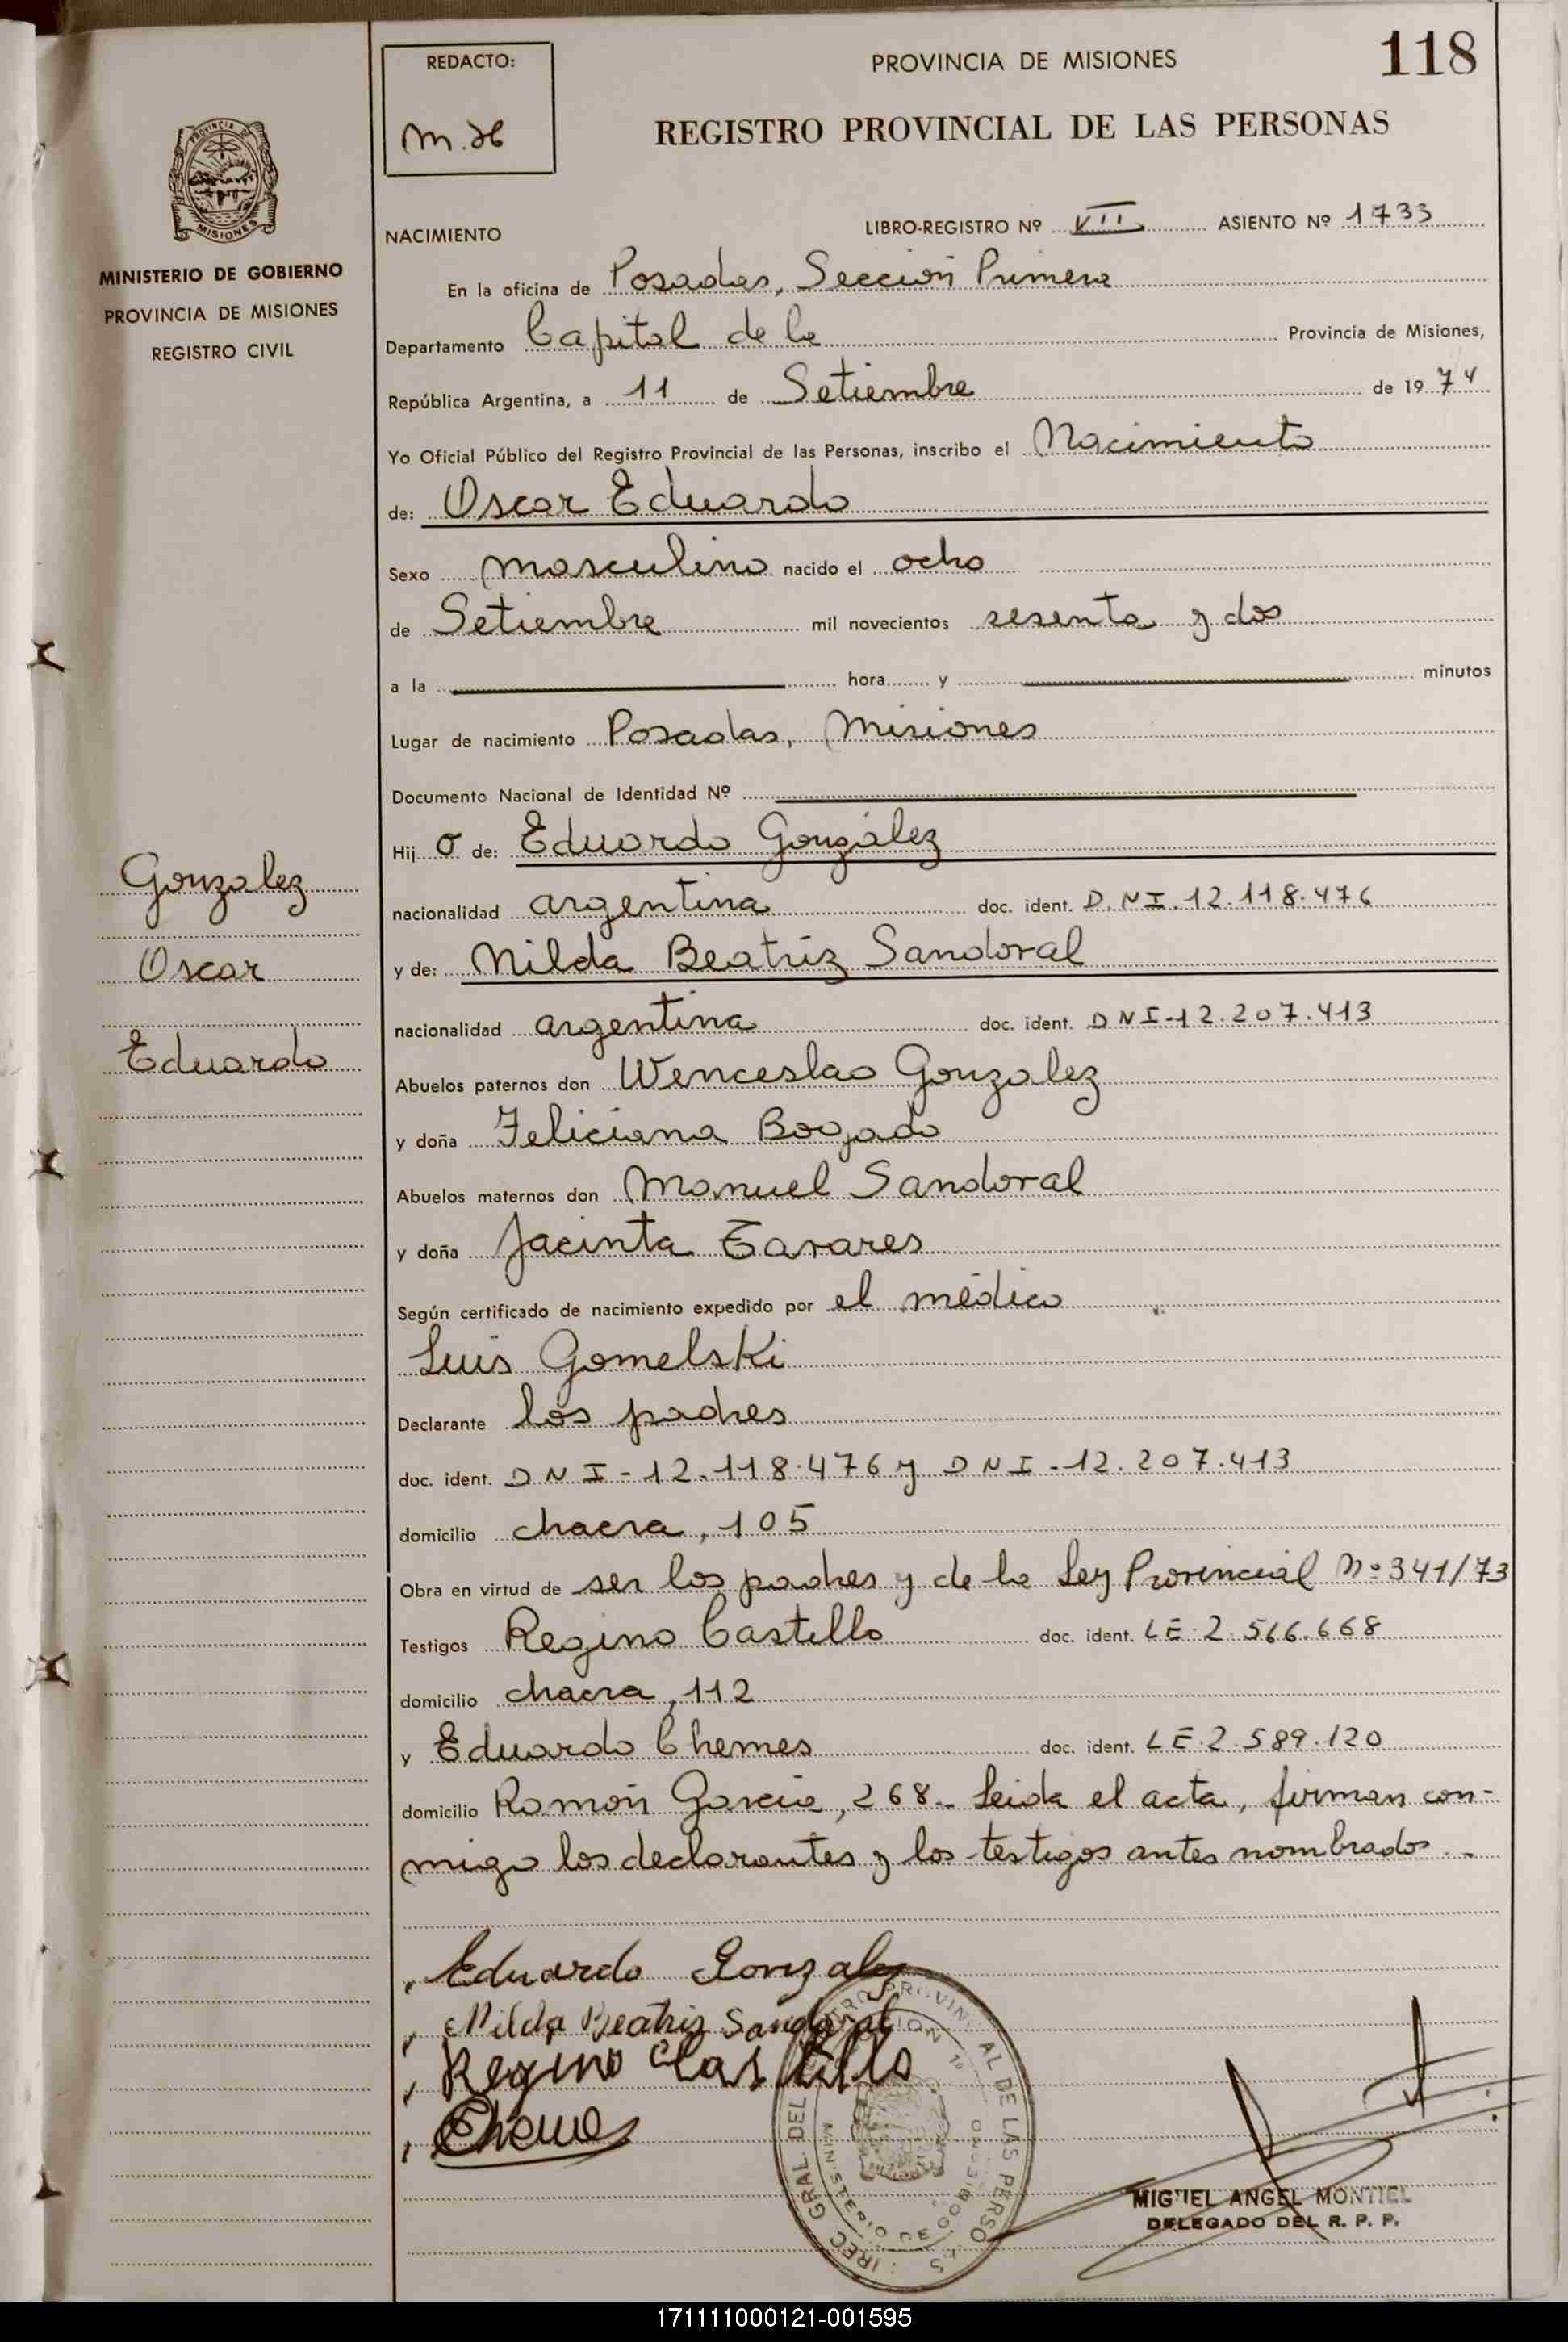 REDACTO:
M.H
PROVINCIA DE MISIONES
118
REGISTRO PROVINCIAL DE LAS PERSONAS
PROVINCIA DE
MISIONES
MINISTERIO DE GOBIERNO
PROVINCIA DE MISIONES
REGISTRO CIVIL
NACIMIENTO LIBRO-REGISTRO Nº VII ASIENTO Nº 1733
En la oficina de Posadas, Sección Primera
Departamento Capital de la Provincia de Misiones,
República Argentina, a 11 de Setiembre de 1974
Yo Oficial Público del Registro Provincial de las Personas, inscribo el Nacimiento
de: Oscar Eduardo
Sexo masculino nacido el ocho
de Setiembre mil novecientos sesenta y dos
a la hora y minutos
Lugar de nacimiento Posadas, Misiones
Documento Nacional de Identidad Nº
Hijo de: Eduardo González
nacionalidad argentina doc. ident. D.NI.12.118.476
y de: Nilda Beatriz Sandoval
nacionalidad argentina doc. ident. DNI-12.207.413
Abuelos paternos don Wenceslao Gonzalez
y doña Feliciana Bogado
Abuelos maternos don Manuel Sandoval
y doña Jacinta Tavares
Según certificado de nacimiento expedido por el médico
Luis Gomelski
Declarante los padres
doc. ident. DNI-12.118.476 y DNI-12.207.413
domicilio chacra, 105
Obra en virtud de ser los padres y de la Ley Provincial Nº 341/73
Testigos Regino Castillo doc. ident. LE.2.566.668
domicilio chacra, 112
y Eduardo Chemes doc. ident. LE.2.589.120
domicilio Ramón García, 268.- Leida el acta, firman con-
migo los declarantes y los testigos antes nombrados.-
Gonzalez
Oscar
Eduardo
Eduardo Gonzalez
Nilda Beatriz Sandoval
Regino Castillo
Chemes
MIGUEL ANGEL MONTIEL
DELEGADO DEL R. P. P.
171111000121-001595